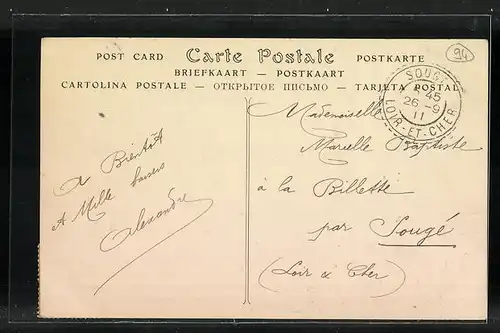 POST CARD Carte Postale POSTKARTE
BRIEFKAART — POSTKAART
CARTOLINA POSTALE — ОТКРЫТОЕ ПИСЬМО — TARJETA POSTAL
94
SOUGÉ
45
26 -9
11
LOIR-ET-CHER
A Bientôt
& Mille baisers
Alexandre
Mademoiselle
Marcelle Baptiste
à la Billette
par Sougé
(Loir & Cher)